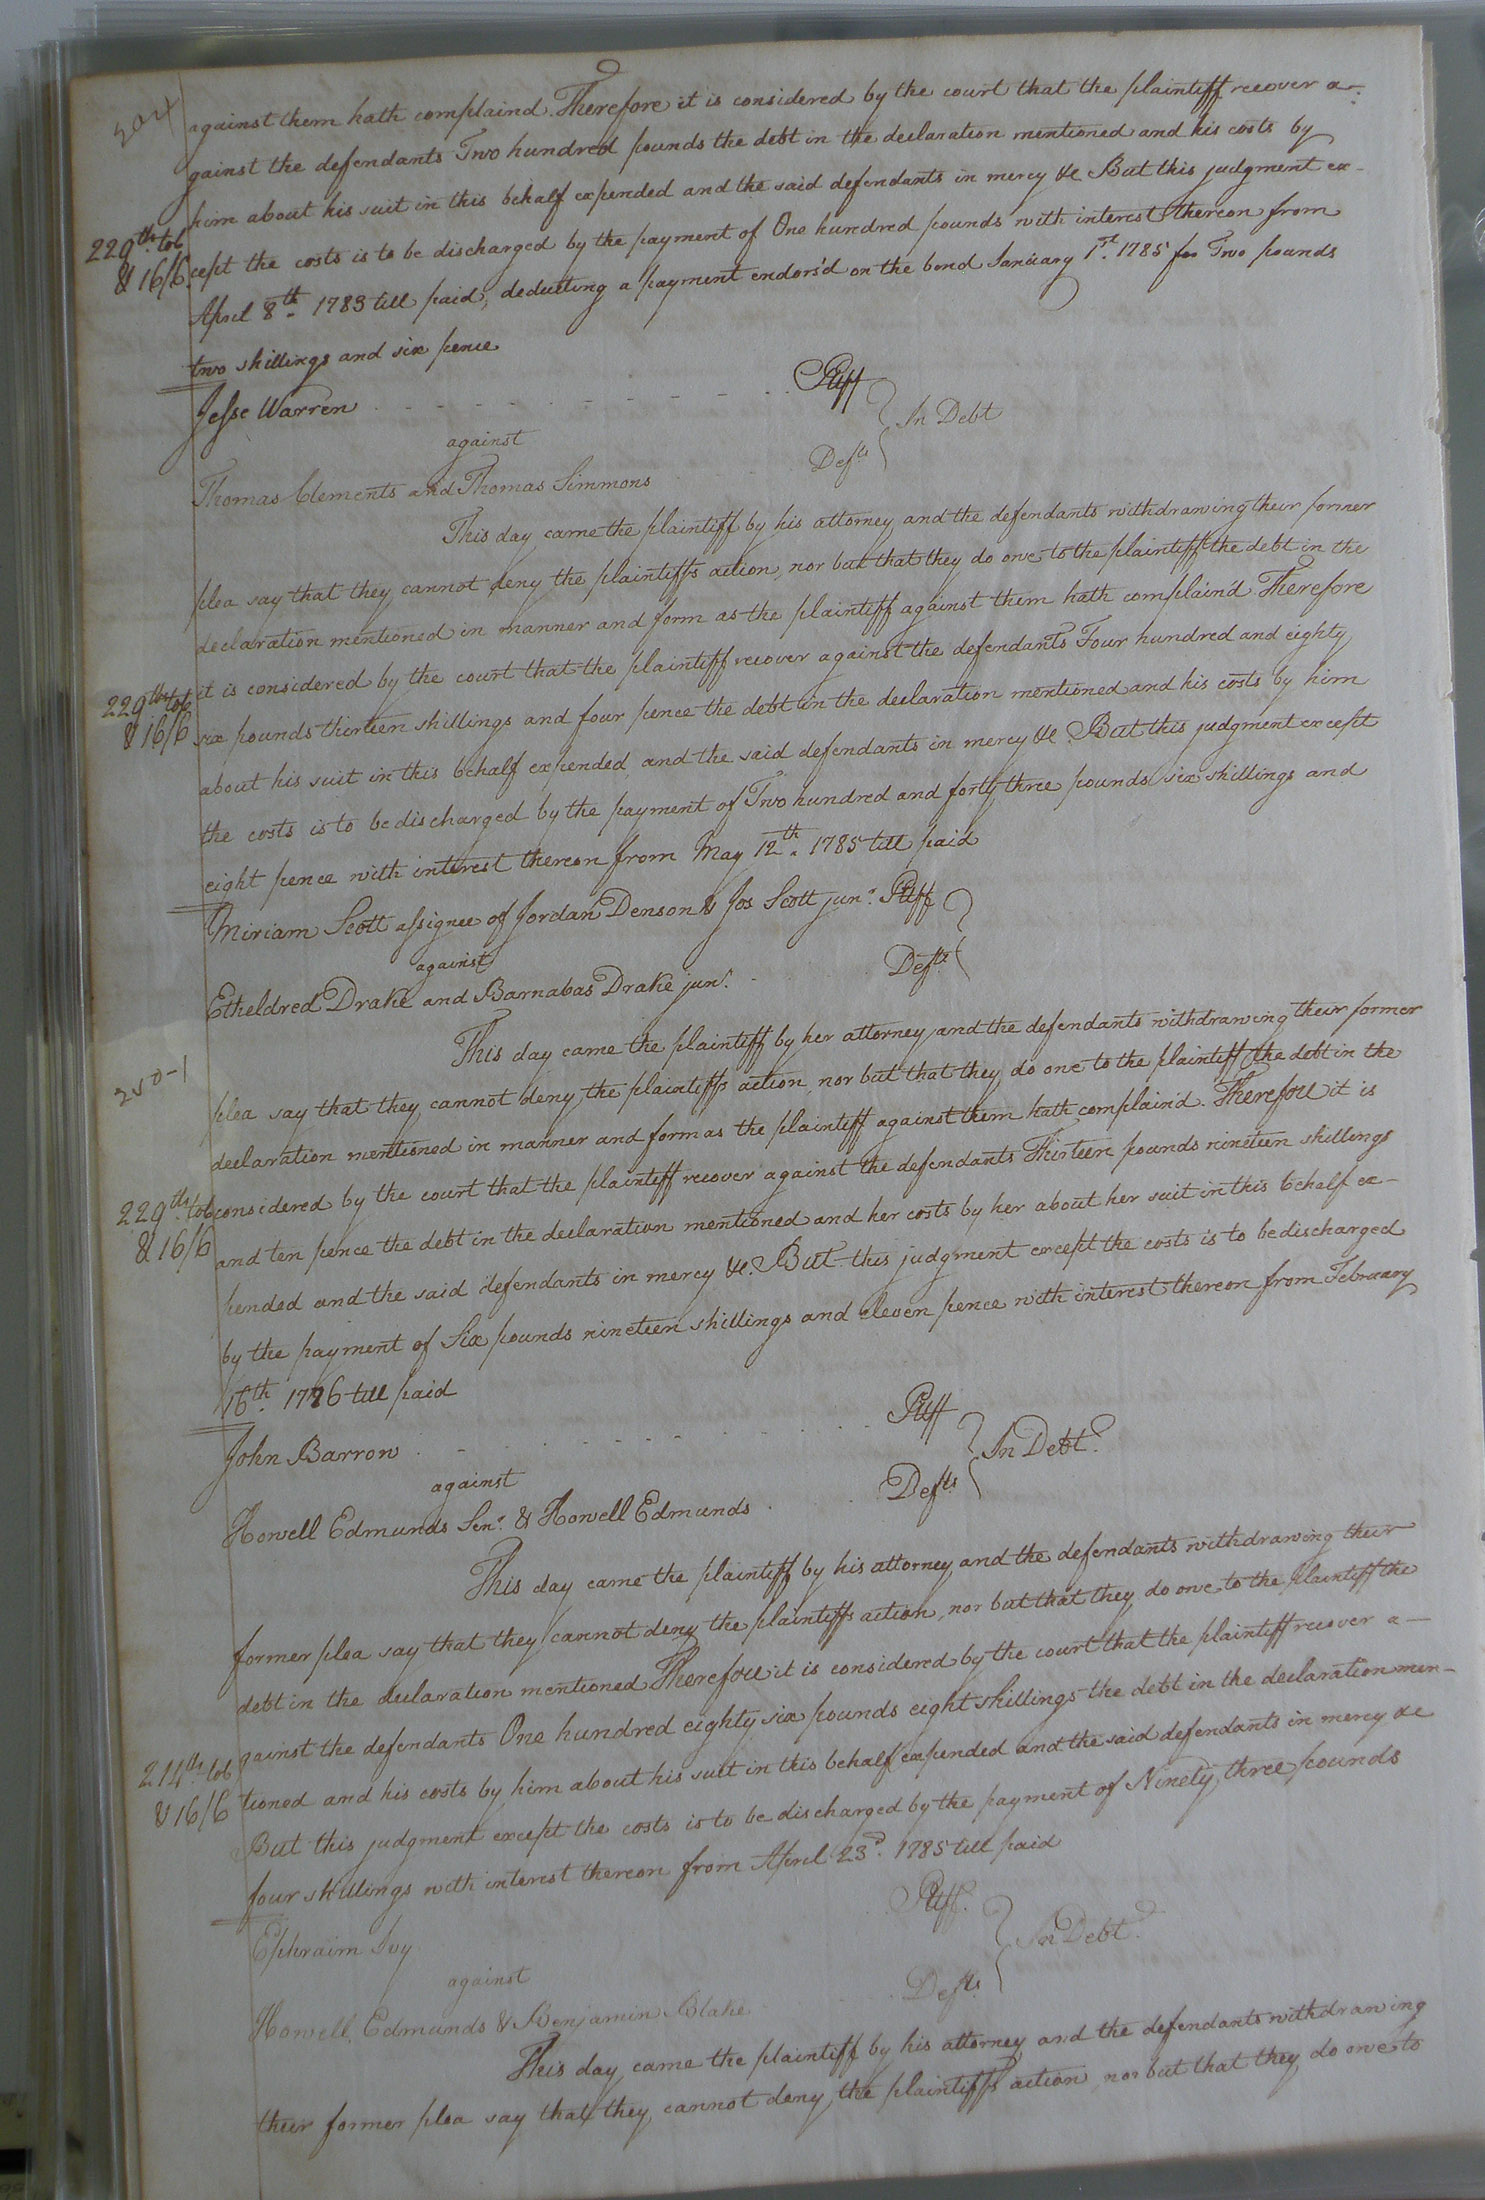 against them hath complaind. Therefore it is considered by the court that the plaintiff recover a-
gainst the defendants Two hundred pounds the debt in the declaration mentioned and his costs by
him about his suit in this behalf expended and the said defendants in mercy &c But this judgment ex-
229th tob
cept the costs is to be discharged by the payment of One hundred pounds with interest thereon from
& 16/6
April 8th 1783 till paid, deducting a payment endors'd on the bond January 1st 1785 for Two pounds
two shillings and six pence
Jesse Warren Pltff
against In Debt
Thomas Clements and Thomas Simmons Defts
This day came the plaintiff by his attorney and the defendants withdrawing their former
plea say that they cannot deny the plaintiffs action, nor but that they do owe to the plaintiff the debt in the
declaration mentioned in manner and form as the plaintiff against them hath complain'd Therefore
it is considered by the court that the plaintiff recover against the defendants Four hundred and eighty
229th tob
six pounds thirteen shillings and four pence the debt in the declaration mentioned and his costs by him
& 16/6
about his suit in this behalf expended, and the said defendants in mercy &c. But this judgment except
the costs is to be discharged by the payment of Two hundred and forty three pounds six shillings and
eight pence with interest thereon from May 12th 1785 till paid
Miriam Scott assignee of Jordan Denson & Jos Scott junr. Pltff
against
Etheldred Drake and Barnabas Drake junr. Defts
This day came the plaintiff by her attorney and the defendants withdrawing their former
plea say that they cannot deny the plaintiffs action, nor but that they do owe to the plaintiff the debt in the
declaration mentioned in manner and form as the plaintiff against them hath complain'd. Therefore it is
229th tob
considered by the court that the plaintiff recover against the defendants Thirteen pounds nineteen shillings
& 16/6
and ten pence the debt in the declaration mentioned and her costs by her about her suit in this behalf ex-
pended and the said defendants in mercy &c. But this judgment except the costs is to be discharged
by the payment of Six pounds nineteen shillings and eleven pence with interest thereon from February
16th 1776 till paid
John Barron Pltff
against In Debt
Howell Edmunds Senr. & Howell Edmunds Defts
This day came the plaintiff by his attorney and the defendants withdrawing their
former plea say that they cannot deny the plaintiffs action, nor but that they do owe to the plaintiff the
debt in the declaration mentioned Therefore it is considered by the court that the plaintiff recover a-
gainst the defendants One hundred eighty six pounds eight shillings the debt in the declaration men-
214th tob
tioned and his costs by him about his suit in this behalf expended and the said defendants in mercy &c
& 16/6
But this judgment except the costs is to be discharged by the payment of Ninety three pounds
four shillings with interest thereon from April 23d. 1785 till paid
Ephraim Ivy Pltff.
against In Debt
Howell Edmunds & Benjamin Blake Defts
This day came the plaintiff by his attorney and the defendants withdrawing
their former plea say that they cannot deny the plaintiffs action, nor but that they do owe to